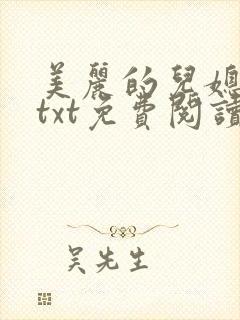 美麗的兒媳
txt免費閱讀
吳先生